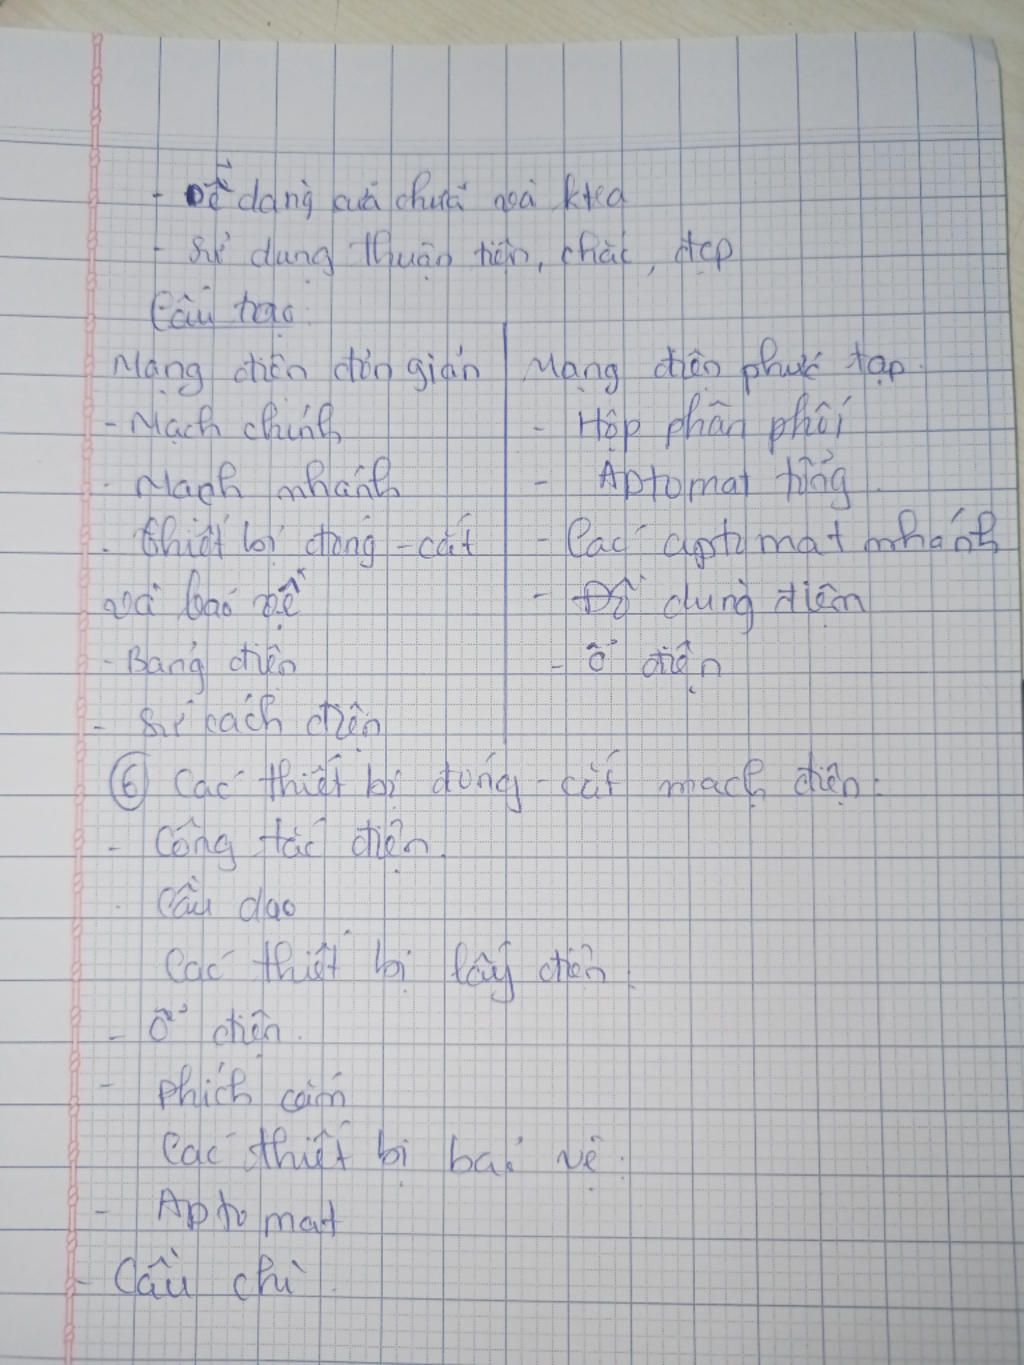 - Dễ dàng sửa chữa và ktra
- Sử dụng thuận tiện, chắc, đẹp
Cấu tạo:
Mạng điện đơn giản
- Mạch chính
- Mạch nhánh
- thiết bị đóng - cắt
và bảo vệ
- Bảng điện
- Sứ cách điện
Mạng điện phức tạp.
- Hộp phân phối
- Aptomat tổng
- Các aptomat nhánh
- Đồ dùng điện
- Ổ điện
⑥ Các thiết bị đóng - cắt mạch điện:
- Công tắc điện.
- Cầu dao
Các thiết bị lấy điện:
- Ổ điện.
- Phích cắm
Các thiết bị bảo vệ:
- Aptomat
- Cầu chì.